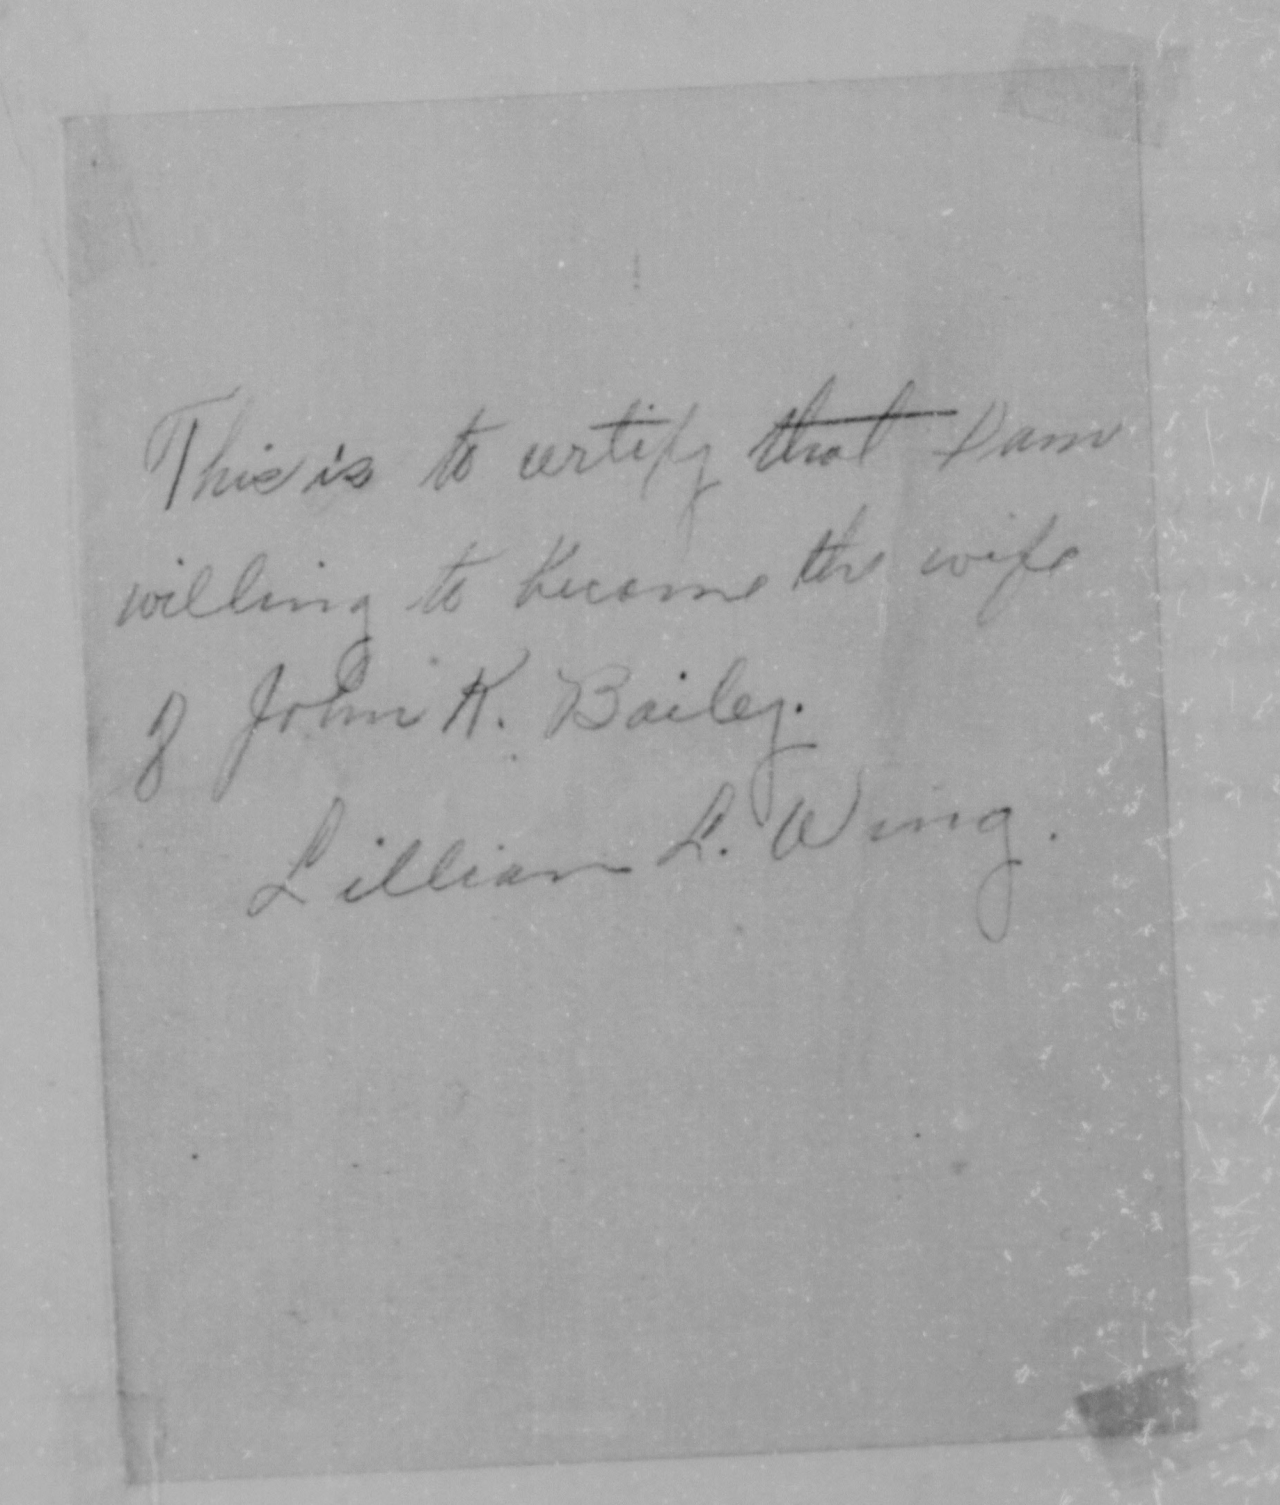 This is to certify that I am
willing to become the wife
of John K. Bailey.
Lillian L. Wing.